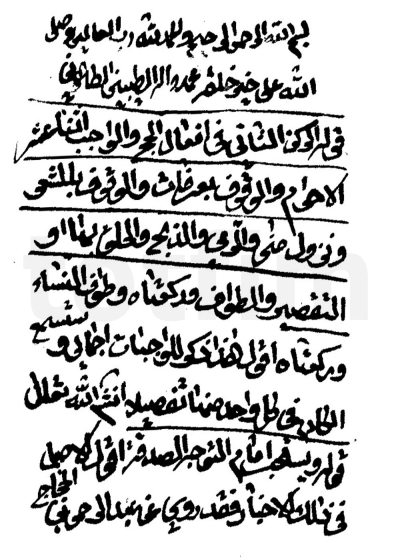 بسم الله الرحمن الرحيم والحمد لله رب العالمين وصلى
الله على خير خلقه محمد واله الطيبين الطاهرين
قوله الركن الثاني في افعال الحج والواجب اثنا عشر
الاحرام والوقوف بعرفات والوقوف بالمشعر
ونزول منى والرمي والذبح والحلق بها او
التقصير والطواف وركعتاه وطواف النساء
وركعتاه اقول هذا ذكر للواجبات اجمالي و سنشبع
الكلام في كل واحد منها تفصيلا انشاء الله تعالى
قوله ويستحب امام التوجه الصدقة اقول الاصل
في ذلك الاخبار فقد روي عن عبد الرحمن بن الحجاج